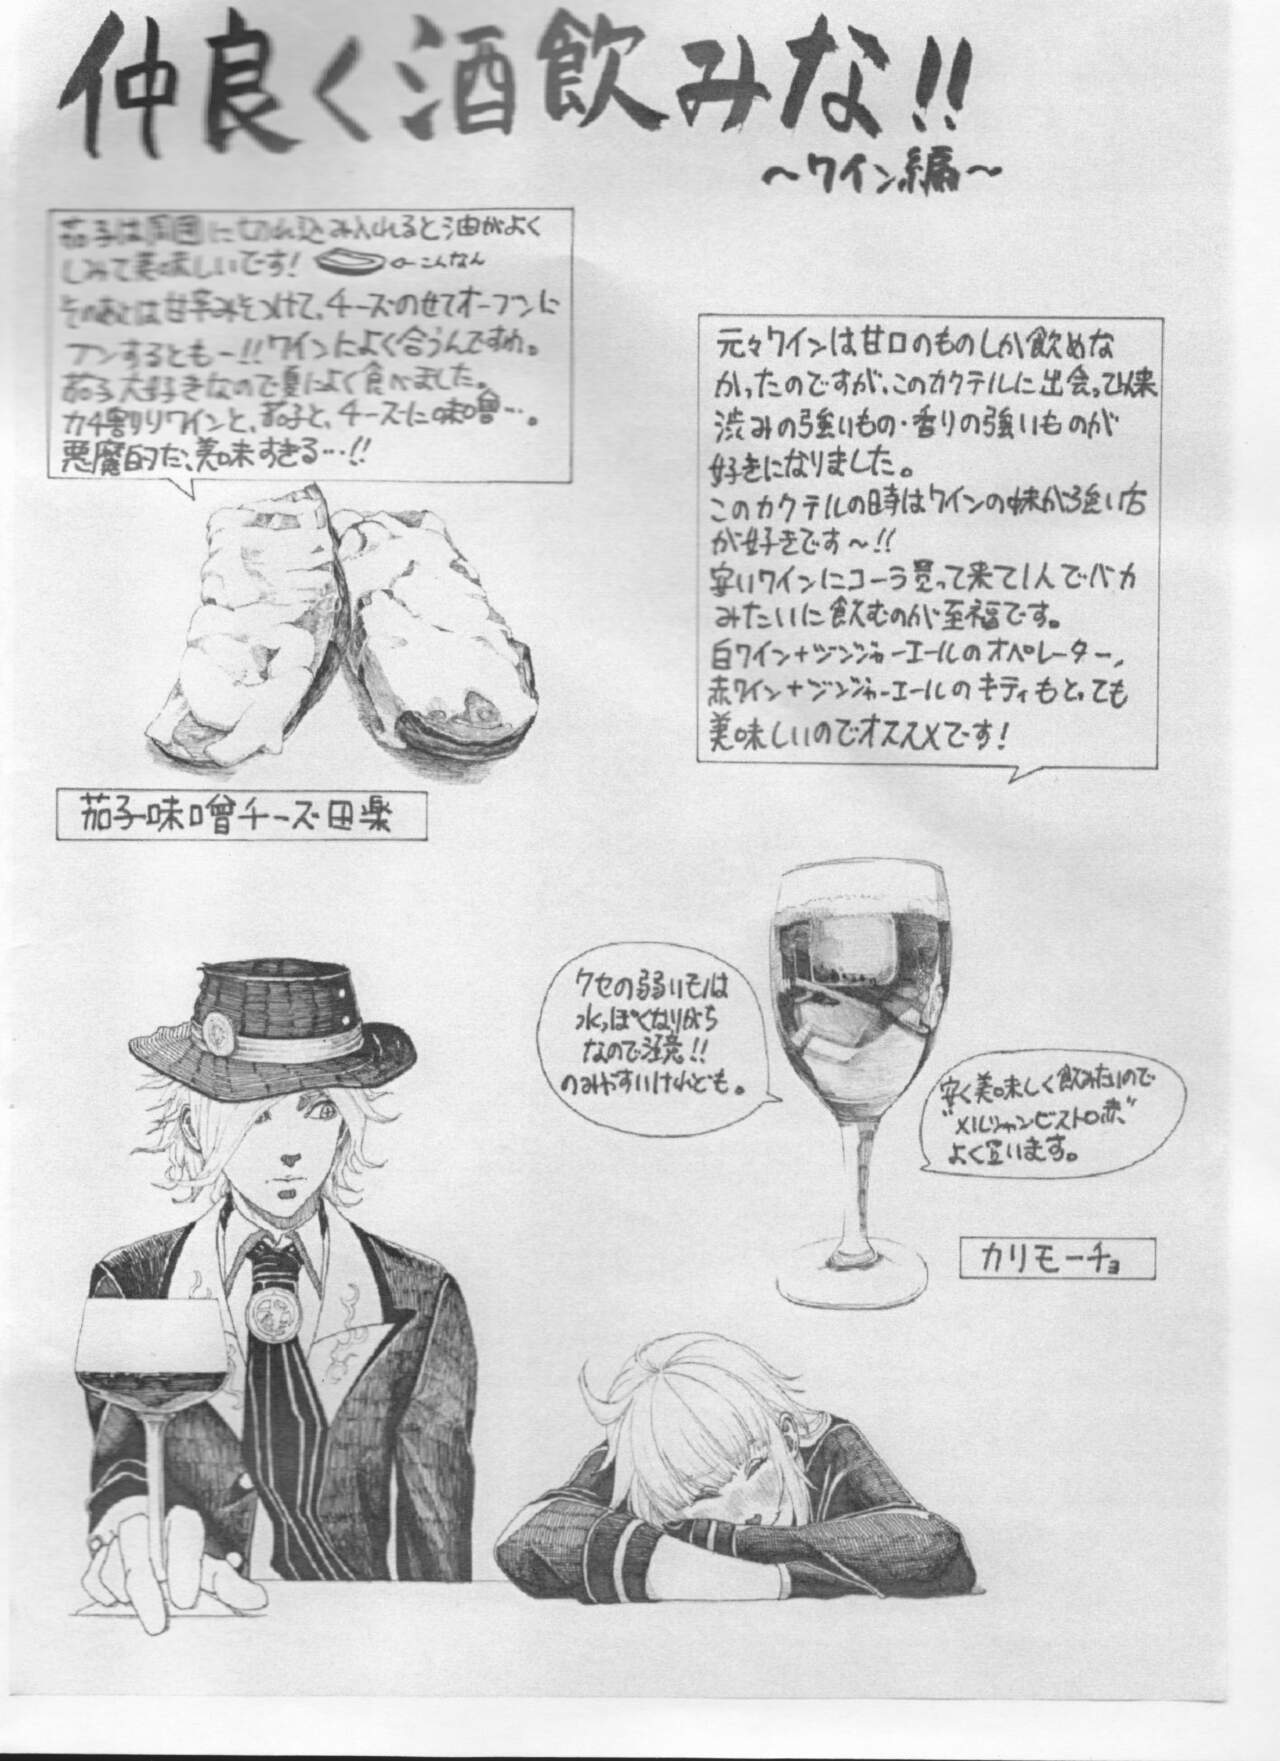 仲良く酒飲みな!!
～ワイン編～
茄子は周囲に切れ込み入れると油がよく
しみて美味しいです! ←こんなん
そのあとは甘辛みそつけて、チーズのせてオーブンに
ブンするともー!!ワインによく合うんですわ。
茄子大好きなので夏によく食べました。
カチ割りワインと、茄子と、チーズに味噌…。
悪魔的だ、美味すぎる…!!
茄子味噌チーズ田楽
元々ワインは甘口のものしか飲めな
かったのですが、このカクテルに出会って以来
渋みの強いもの・香りの強いものが
好きになりました。
このカクテルの時はワインの味が強い店
が好きです～!!
安いワインにコーラ買って来て1人でバカ
みたいに飲むのが至福です。
白ワイン+ジンジャーエールのオペレーター、
赤ワイン+ジンジャーエールのキティもとっても
美味しいのでオススメです!
クセの弱いモノは
水っぽくなりがち
なので注意!!
のみやすいけれども。
安く美味しく飲みたいので
"メルシャンビストロ赤"
よく買います。
カリモーチョ